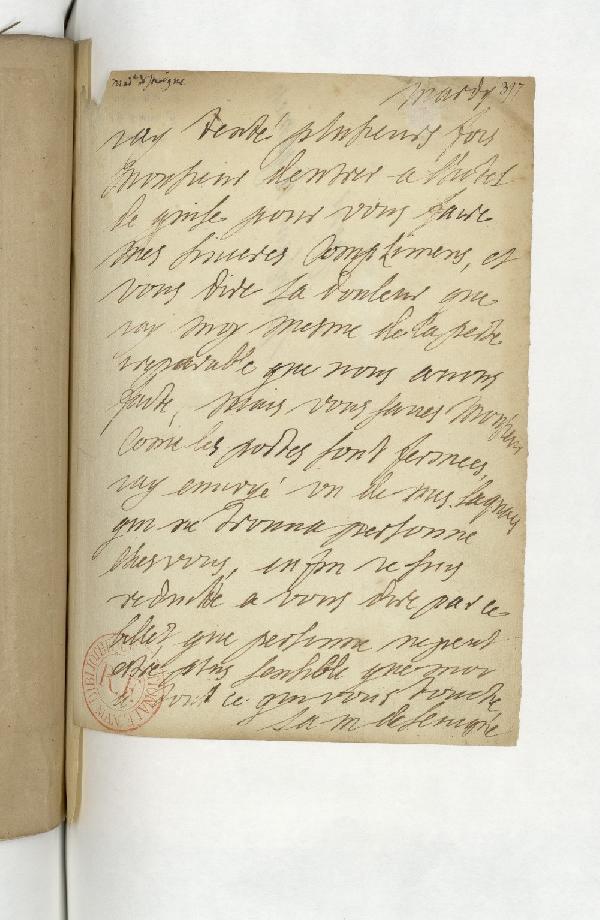 mad.e de sevigne
mardy 317
jay tenté plusieurs fois
monsieur dentrer a lhotel
de guise pour vous faire
mes sinceres complimens, et
vous dire la douleur que
jai moy mesme de la perte
ireparable que nous avons
faite, mais vous saves monsieur
come les portes sont fermees,
jay envoyé un de mes laquais
qui ne trouva personne
ches vous, enfin je suis
reduitte a vous dire par ce
billet que personne ne peut
estre plus sensible que moi
a tout ce qui vous touche
la m de sevigné
BIBLIOTHEQUE NATIONALE